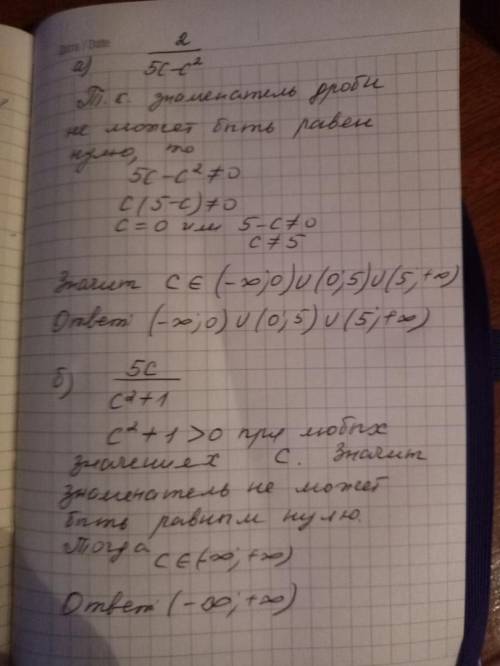 Date / Date
а) 2/(5c-c²)
Т.к. знаменатель дроби
не может быть равен
нулю, то
5c-c²≠0
c(5-c)≠0
c=0 или 5-c≠0
c≠5
Значит c∈(-∞;0)∪(0;5)∪(5;+∞)
Ответ (-∞;0)∪(0;5)∪(5;+∞)
б) 5c/(c²+1)
c²+1>0 при любых
значениях c. Значит
знаменатель не может
быть равным нулю.
Тогда c∈(-∞;+∞)
Ответ (-∞;+∞)